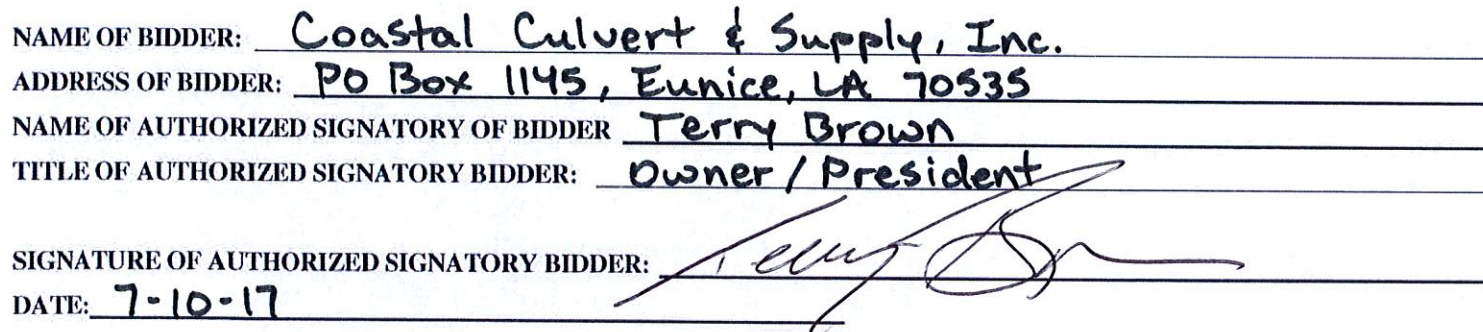 NAME OF BIDDER: Coastal Culvert & Supply, Inc.
ADDRESS OF BIDDER: PO Box 1145, Eunice, LA 70535
NAME OF AUTHORIZED SIGNATORY OF BIDDER Terry Brown
TITLE OF AUTHORIZED SIGNATORY BIDDER: Owner / President
SIGNATURE OF AUTHORIZED SIGNATORY BIDDER: Terry Brown
DATE: 7-10-17